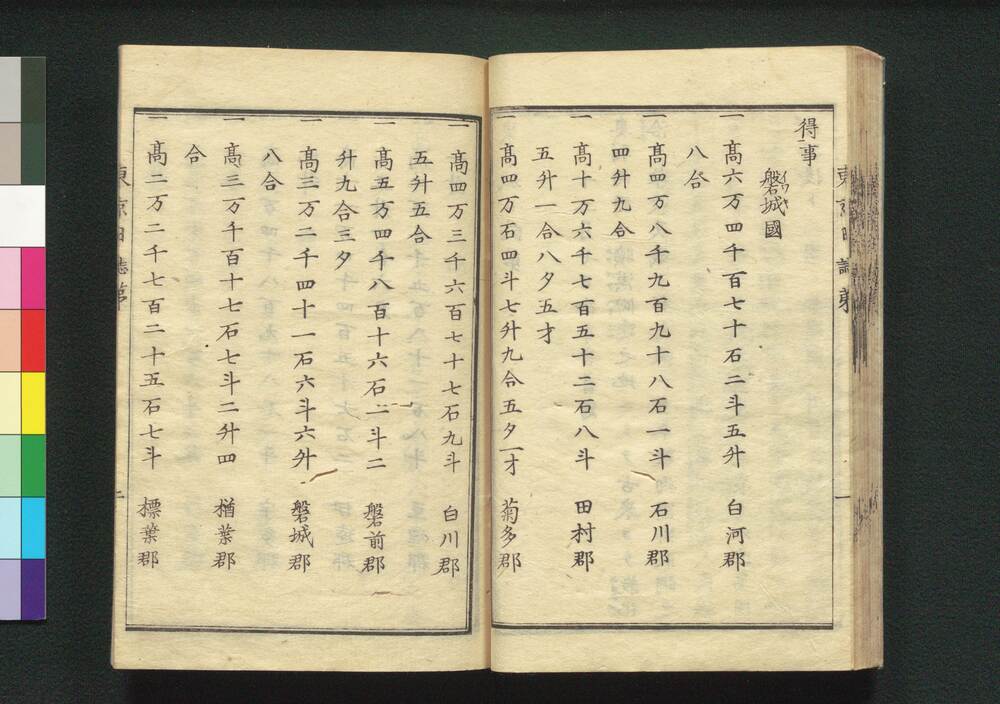 得事
磐城國
一高六万四千百七十石二斗五升 白河郡
八合
一高四万八千九百九十八石一斗 石川郡
四升九合
一高十万六千七百五十二石八斗 田村郡
五升一合八夕五才
一高四万石四斗七升九合五夕一才 菊多郡
一高四万三千六百七十七石九斗 白川郡
五升五合
一高五万四千八百十六石一斗二 磐前郡
升九合三夕
一高三万二千四十一石六斗六升 磐城郡
八合
一高三万千百十七石七斗二升四 楢葉郡
合
一高二万二千七百二十五石七斗 標葉郡